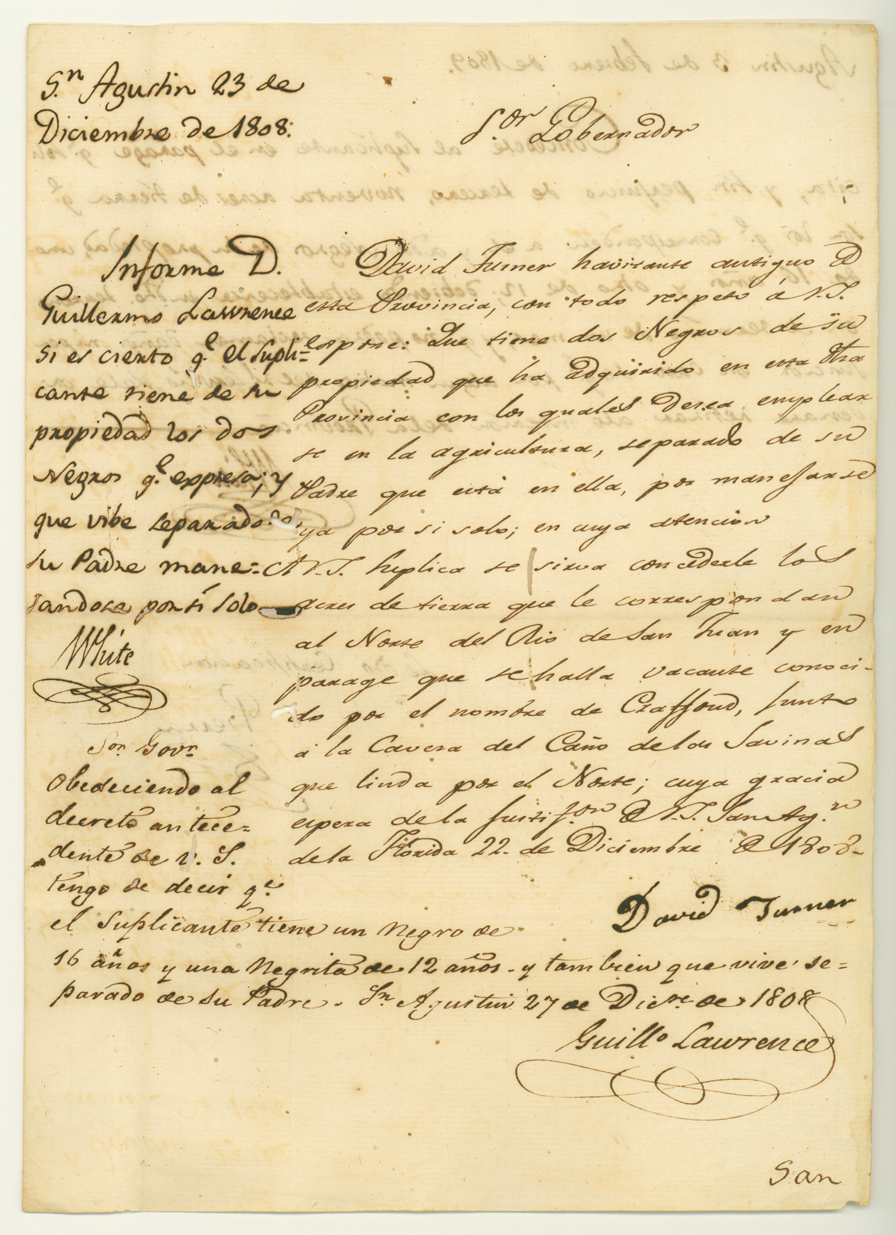 Sn. Agustin 23 de
Diciembre de 1808.
Informe D.
Guillermo Lawrence
si es cierto q.e el supli=
cante tiene de su
propiedad los dos
Negros q.e expresa; y
que vibe separado de
su Padre mane=
jandose por sí solo
White
Sor. Govr.
Obedeciendo al
decreto antece=
dente de V. S.
tengo de decir qe.
el suplicante tiene un Negro de
16 años y una Negrita de 12 años. y tambien que vive se=
parado de su Padre. Sn. Agustin 27 de Dicre. de 1808
Guillo. Lawrence
Sor. Gobernador
David Turner havitante antiguo de
esta Provincia, con todo respeto á V.S.
espone: Que tiene dos Negros de su
propiedad que ha adquirido en esta dha
Provincia con los quales desea emplear
se en la agricultura, separado de su
Padre que está en ella, por manejarse
ya por si solo; en cuya atencion
A V.S. suplica se sirva concederle los
acres de tierra que le correspondan
al Norte del Rio de San Juan y en
parage que se halla vacante conoci-
do por el nombre de Craffoud, junto
á la Cavesa del Caño de los Savinas
que linda por el Norte; cuya gracia
espera de la justifon. de V.S. San Agn.
de la Florida 22. de Diciembre de 1808-
David Turner
San